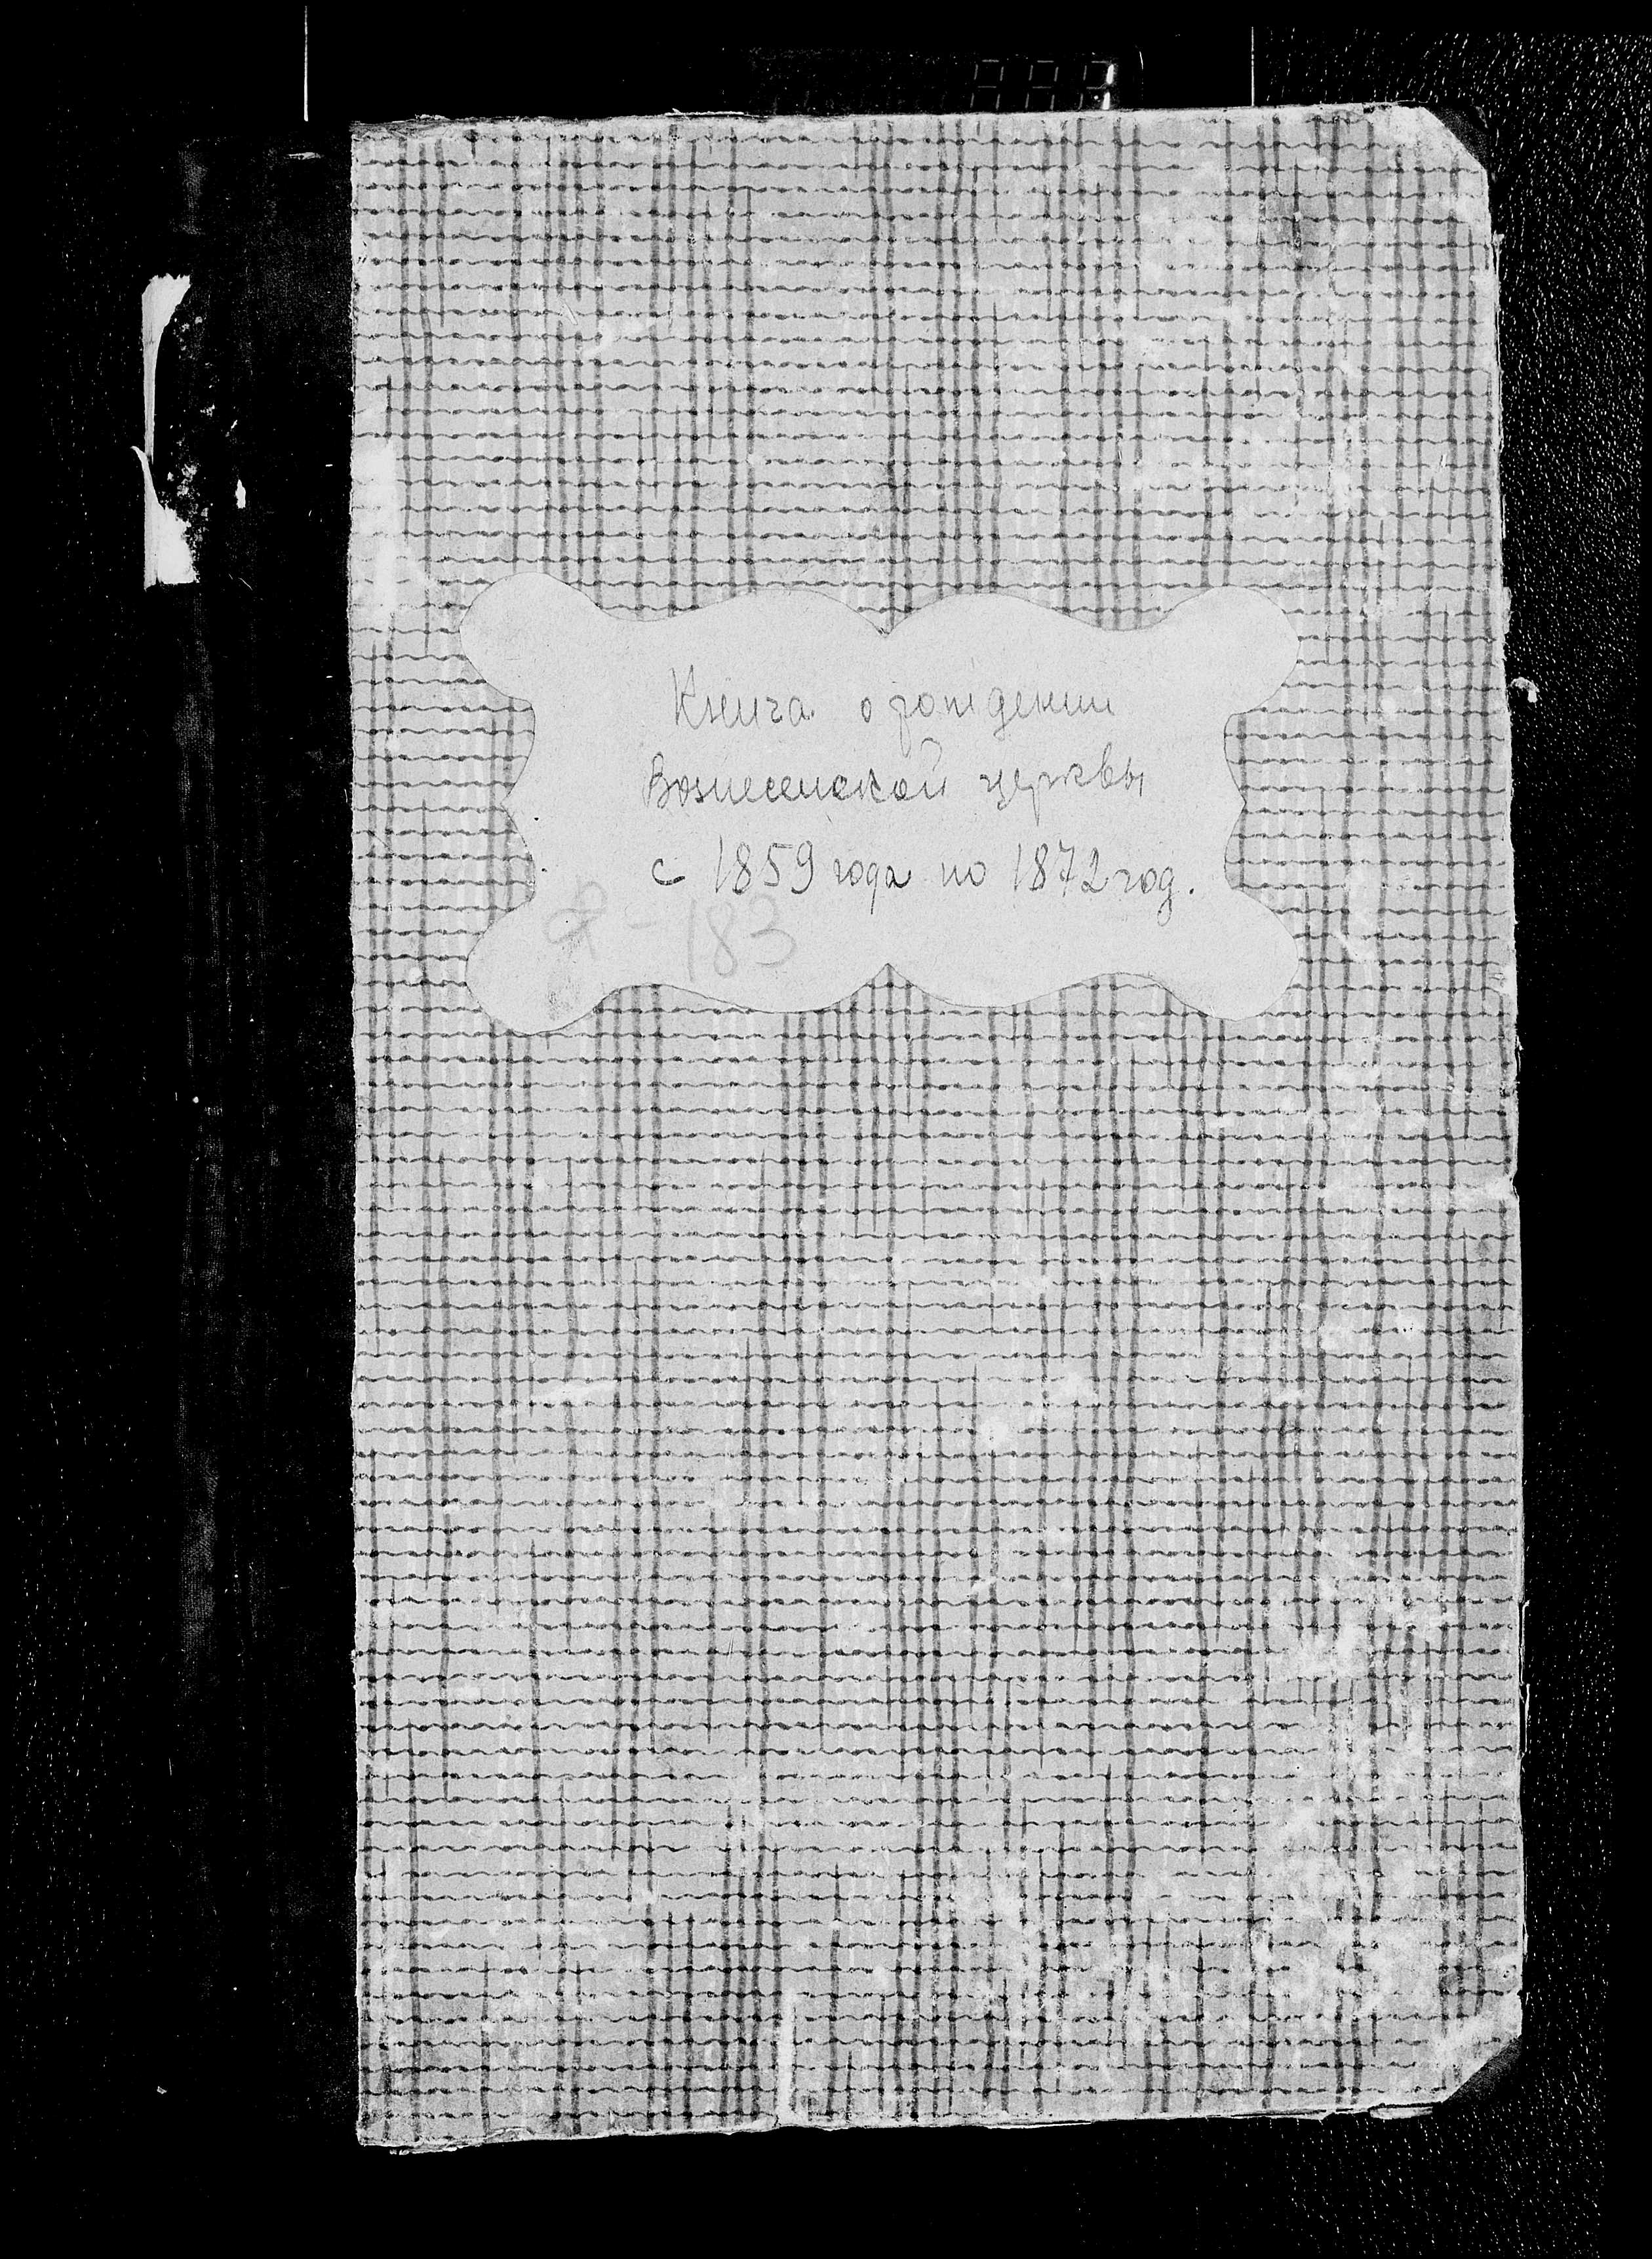 Книга о рождении
Вознесенской церквы
с 1859 года по 1872 год.
183